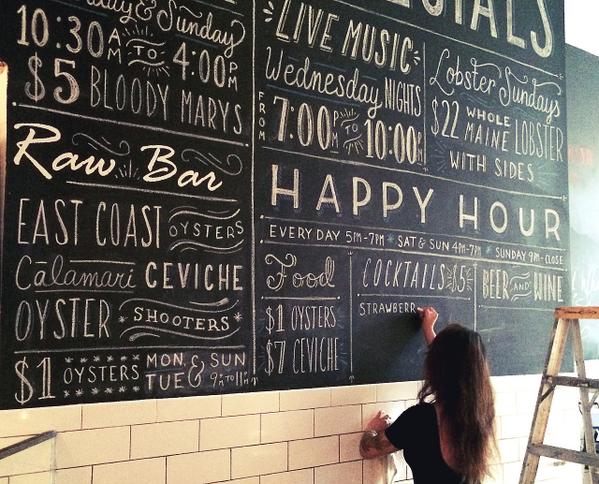 & Sunday
10:30 AM TO 4:00 PM
$5 BLOODY MARYS
Raw Bar
EAST COAST OYSTERS
Calamari CEVICHE
OYSTER SHOOTERS
$1 OYSTERS MON, TUE & SUN 9PM TO 11PM
LIVE MUSIC
Wednesday NIGHTS
FROM 7:00 PM TO 10:00 PM
Lobster Sundays
$22 WHOLE MAINE LOBSTER
WITH SIDES
HAPPY HOUR
EVERY DAY 5PM-7PM * SAT & SUN 4PM-7PM * SUNDAY 9PM-CLOSE
Food
$1 OYSTERS
$7 CEVICHE
COCKTAILS $5
STRAWBERR
BEER AND WINE